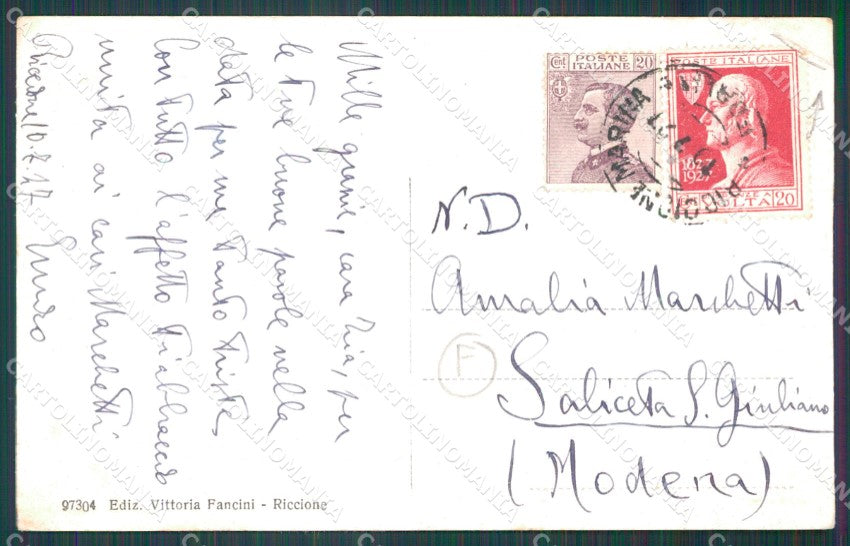 Mille grazie, cara Zia, per
le tue buone parole nella
data per me tanto triste.
Con tutto l'affetto ti abbraccio
unita ai cari Marchetti
Riccione, 10.7.27
cent POSTE ITALIANE 20
POSTE ITALIANE
1827
1927
VOLTA 20
RICCIONE MARINA
N.D.
Amalia Marchetti
Saliceta S. Giuliano
(Modena)
F
97304 Ediz. Vittoria Fancini - Riccione
CARTOLINOMANIA